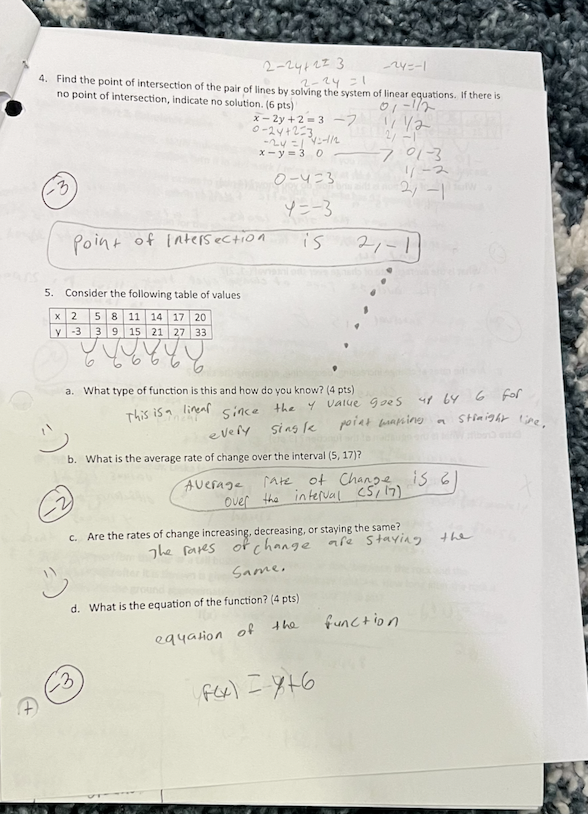 2-2y+2=3 -2y=-1
2-2y=1
4. Find the point of intersection of the pair of lines by solving the system of linear equations. If there is
no point of intersection, indicate no solution. (6 pts)
0,-1/2
x − 2y + 2 = 3 → 1, 1/2
0-2y+2=3 2, -1
-2y=1 y=-1/2
x − y = 3 0 → 0,-3
1,-2
0-y=3 2,-1
-3
y=-3
Point of intersection is 2,-1
5. Consider the following table of values
x 2 5 8 11 14 17 20
y -3 3 9 15 21 27 33
6 6 6 6 6 6
a. What type of function is this and how do you know? (4 pts)
This is a linear since the y value goes up by 6 for
every single point making a straight line.
b. What is the average rate of change over the interval (5, 17)?
Average rate of change is 6
over the interval (5,17)
-2
c. Are the rates of change increasing, decreasing, or staying the same?
The rates of change are staying the
same.
d. What is the equation of the function? (4 pts)
equation of the function
-3
f(x) = +6
+